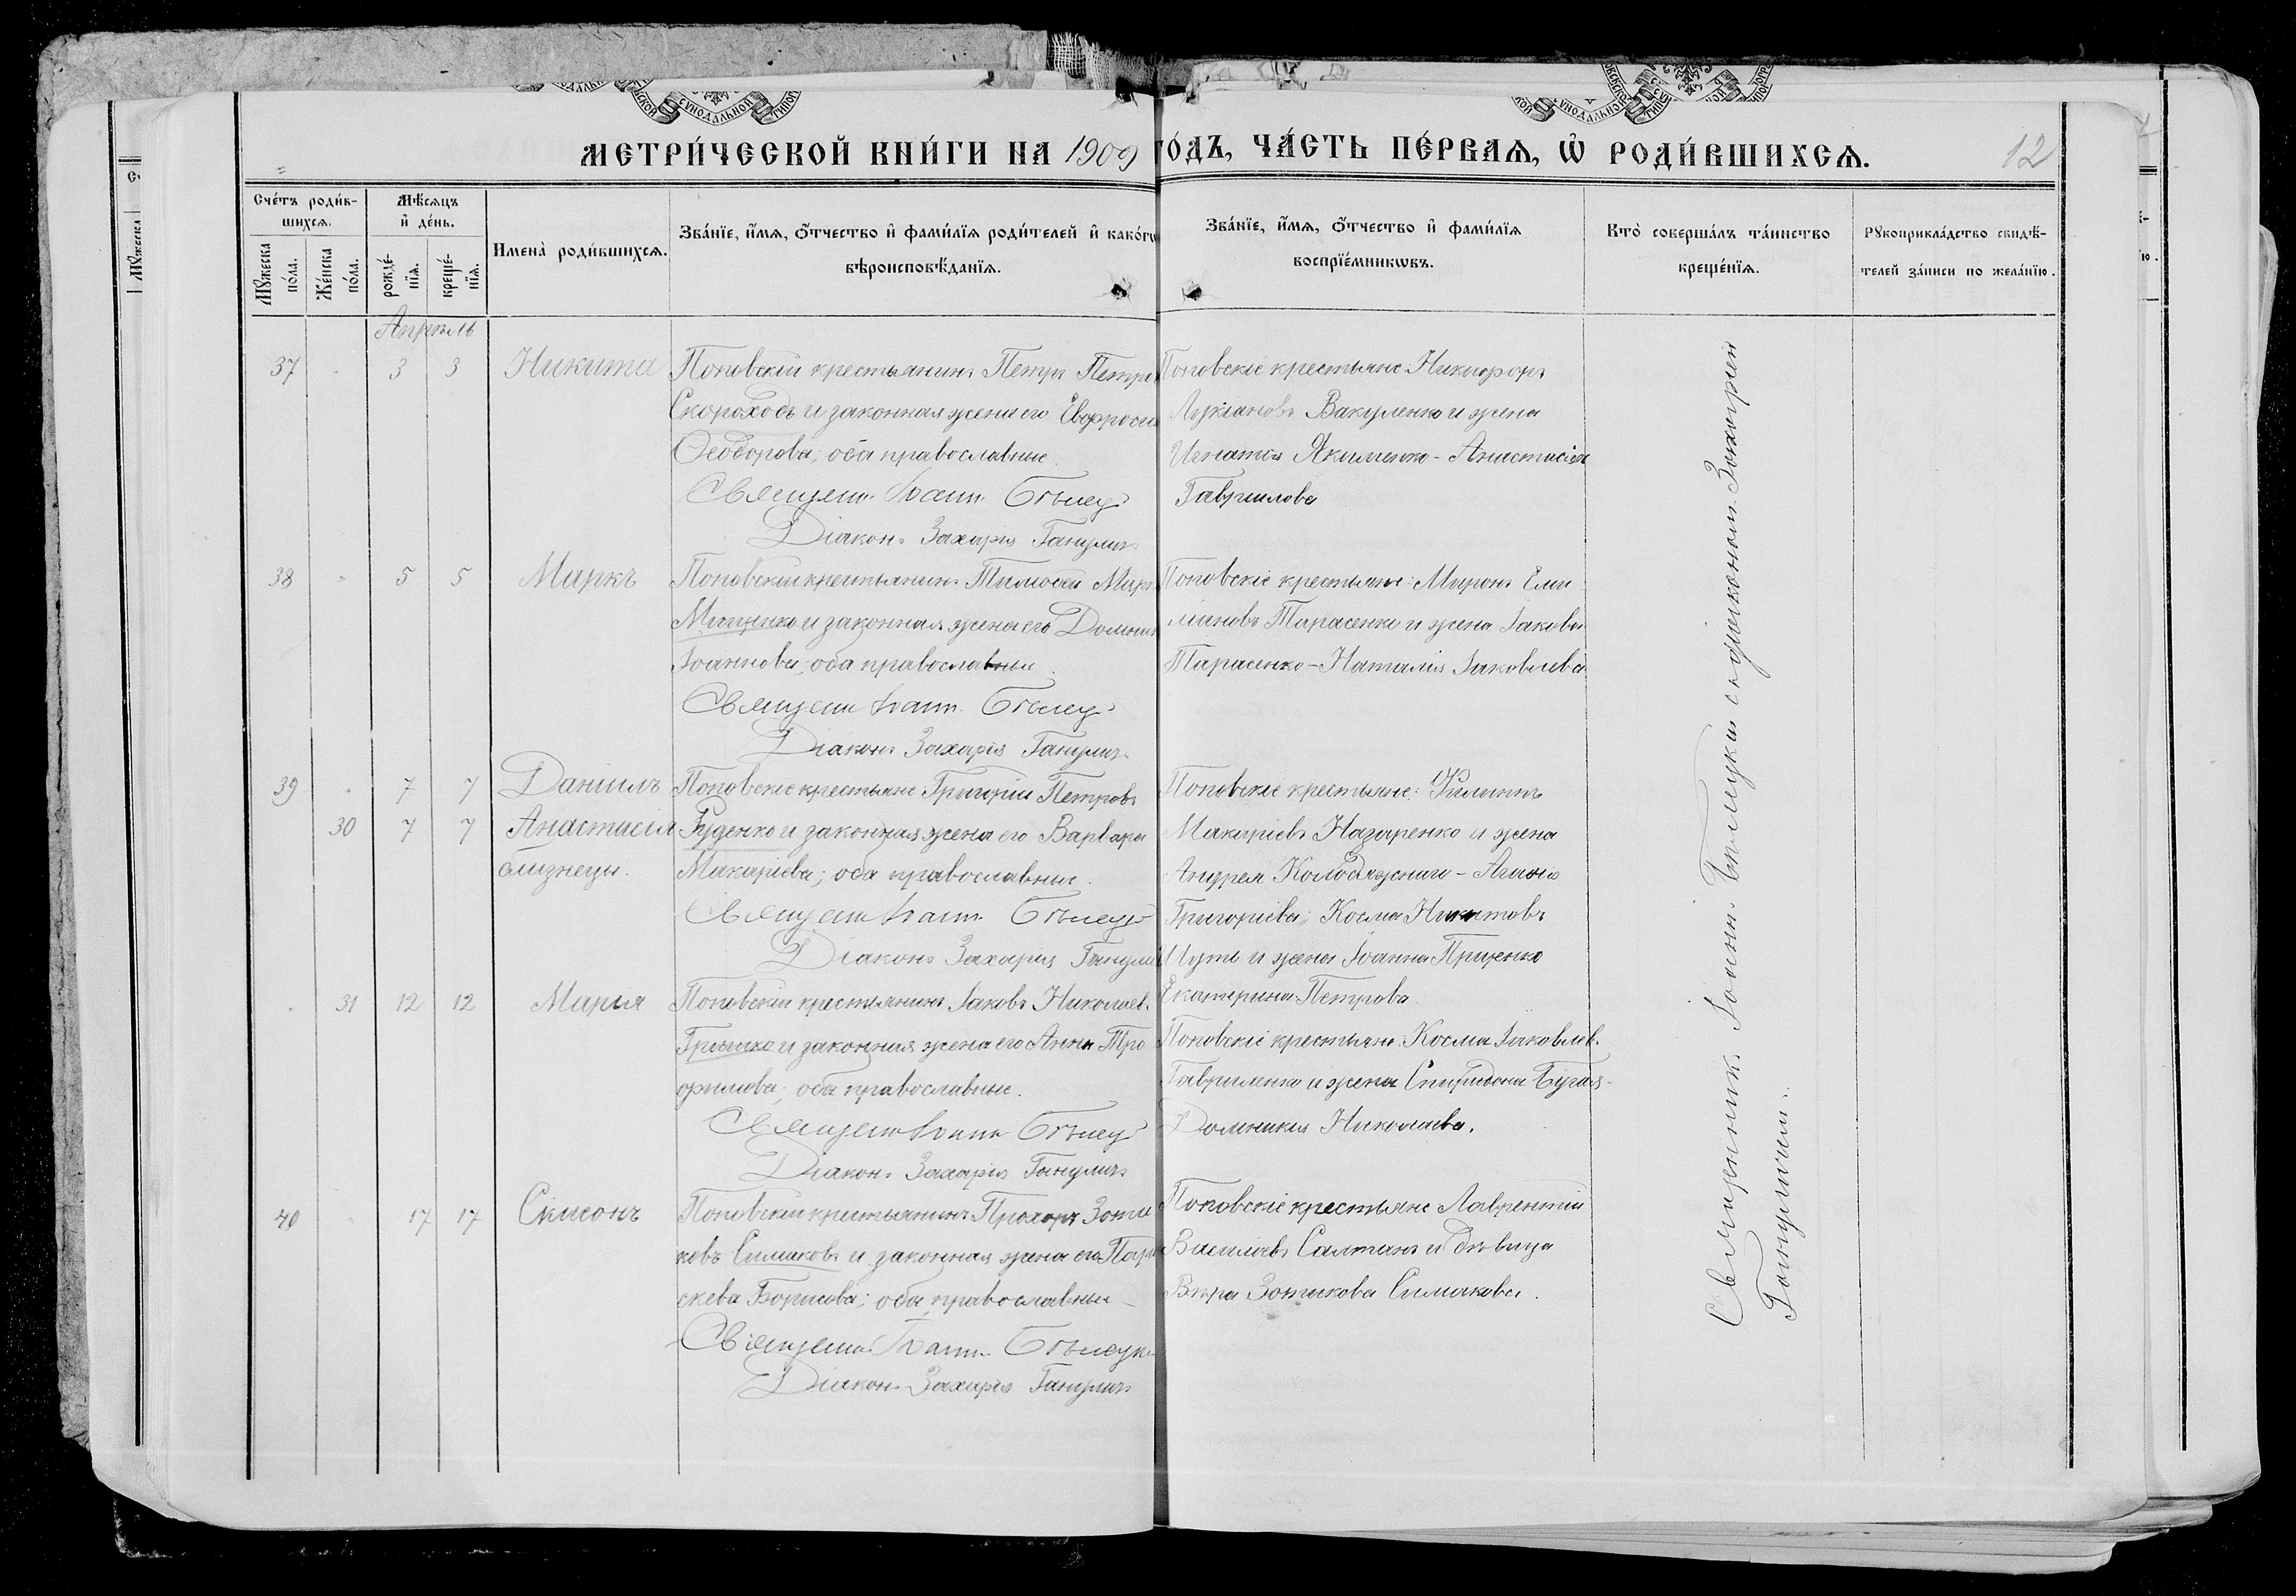 МЕТРИ́ЧЕСКОЙ КНИ́ГИ НА 1909 ГО́ДЪ, ЧА́СТЬ ПЕ́РВАЯ, Ѿ РОДИ́ВШИХСЯ.
12
Сче́тъ роди́в-
шихся.
Мѣ́сяцъ
и҆ де́нь.
Мꙋ́жеска по́ла.
Же́нска по́ла.
рожде́-нїя.
креще́-нїя.
Имена̀ роди́вшихся.
Зва́нїе, и҆́мя, ѻ҆́тчество и҆ фами́лїя роди́телей и҆ како́гѡ
вѣроисповѣ́данїя.
Зва́нїе, и҆́мя, ѻ҆́тчество и҆ фами́лїя
воспрїе́мникѡвъ.
Кто̀ соверша́лъ та́инство
креще́нїя.
Рꙋкоприкла́дство свидѣ́-
телей за́писи по жела́нїю.
Апрѣль
37 - 3 3 Никита
Поповскій крестьянинъ Петръ Петро
Скороходъ и законная жена его Евфроси
Ѳеодорова; оба православные.
Священ. Іоанн Бѣлец
Діаконъ Захарія Ганулич
Поповскіе крестьяне Никифоръ
Лукіановъ Вакуленко и жена
Игнатія Якименко - Анастасія
Гавриилова
38 - 5 5 Маркъ
Поповскій крестьянинъ Тимоѳей Марк
Мищенко и законная жена его Домни
Іоаннова; оба православные.
Священ Іоанн. Бѣлец
Діаконъ Захарія Ганулич
Поповскіе крестьяне: Миронъ Еми
ліановъ Тарасенко и жена Іакова
Тарасенко - Наталія Іаковлева
39 - 7 7 Даніилъ
30 7 7 Анастасія
близнецы.
Поповскіе крестьяне Григорій Петровъ
Руденко и законная жена его Варвара
Макаріева; оба православные.
Священ Іоанн Бѣлец
Діаконъ Захарія Ганули
Поповскіе крестьяне: Филиппъ
Макаріевъ Назаренко и жена
Андрея Колодяжнаго - Агаѳія
Григоріева; Косма Никитовъ
и жена Іоанна Прищенко
Екатерина Петрова.
- 31 12 12 Марія
Поповскій крестьянинъ Іаковъ Николаев.
Гришко и законная жена его Анна Тро
фимова; оба православные.
Священ Іоанн Бѣлец
Діаконъ Захарія Ганулич
Поповскіе крестьяне. Косма Іаковлев.
Гавриленко и жена Спиридона Бугая -
Домникия Николаева.
40 - 17 17 Симеонъ
Поповскій крестьянинъ Прохоръ Зоти
ковъ Симаковъ и законная жена его Пара
скева Борисова; оба православные
Священ. Іоанн. Бѣлецк
Діаконъ Захарія Ганулич
Поповскіе крестьяне Лаврентій
Васильевъ Салтанъ и дѣвица
Вѣра Зотикова Симакова.
Священник Іоанн Бѣлецкій с діаконом Захаріей
Гануличем.